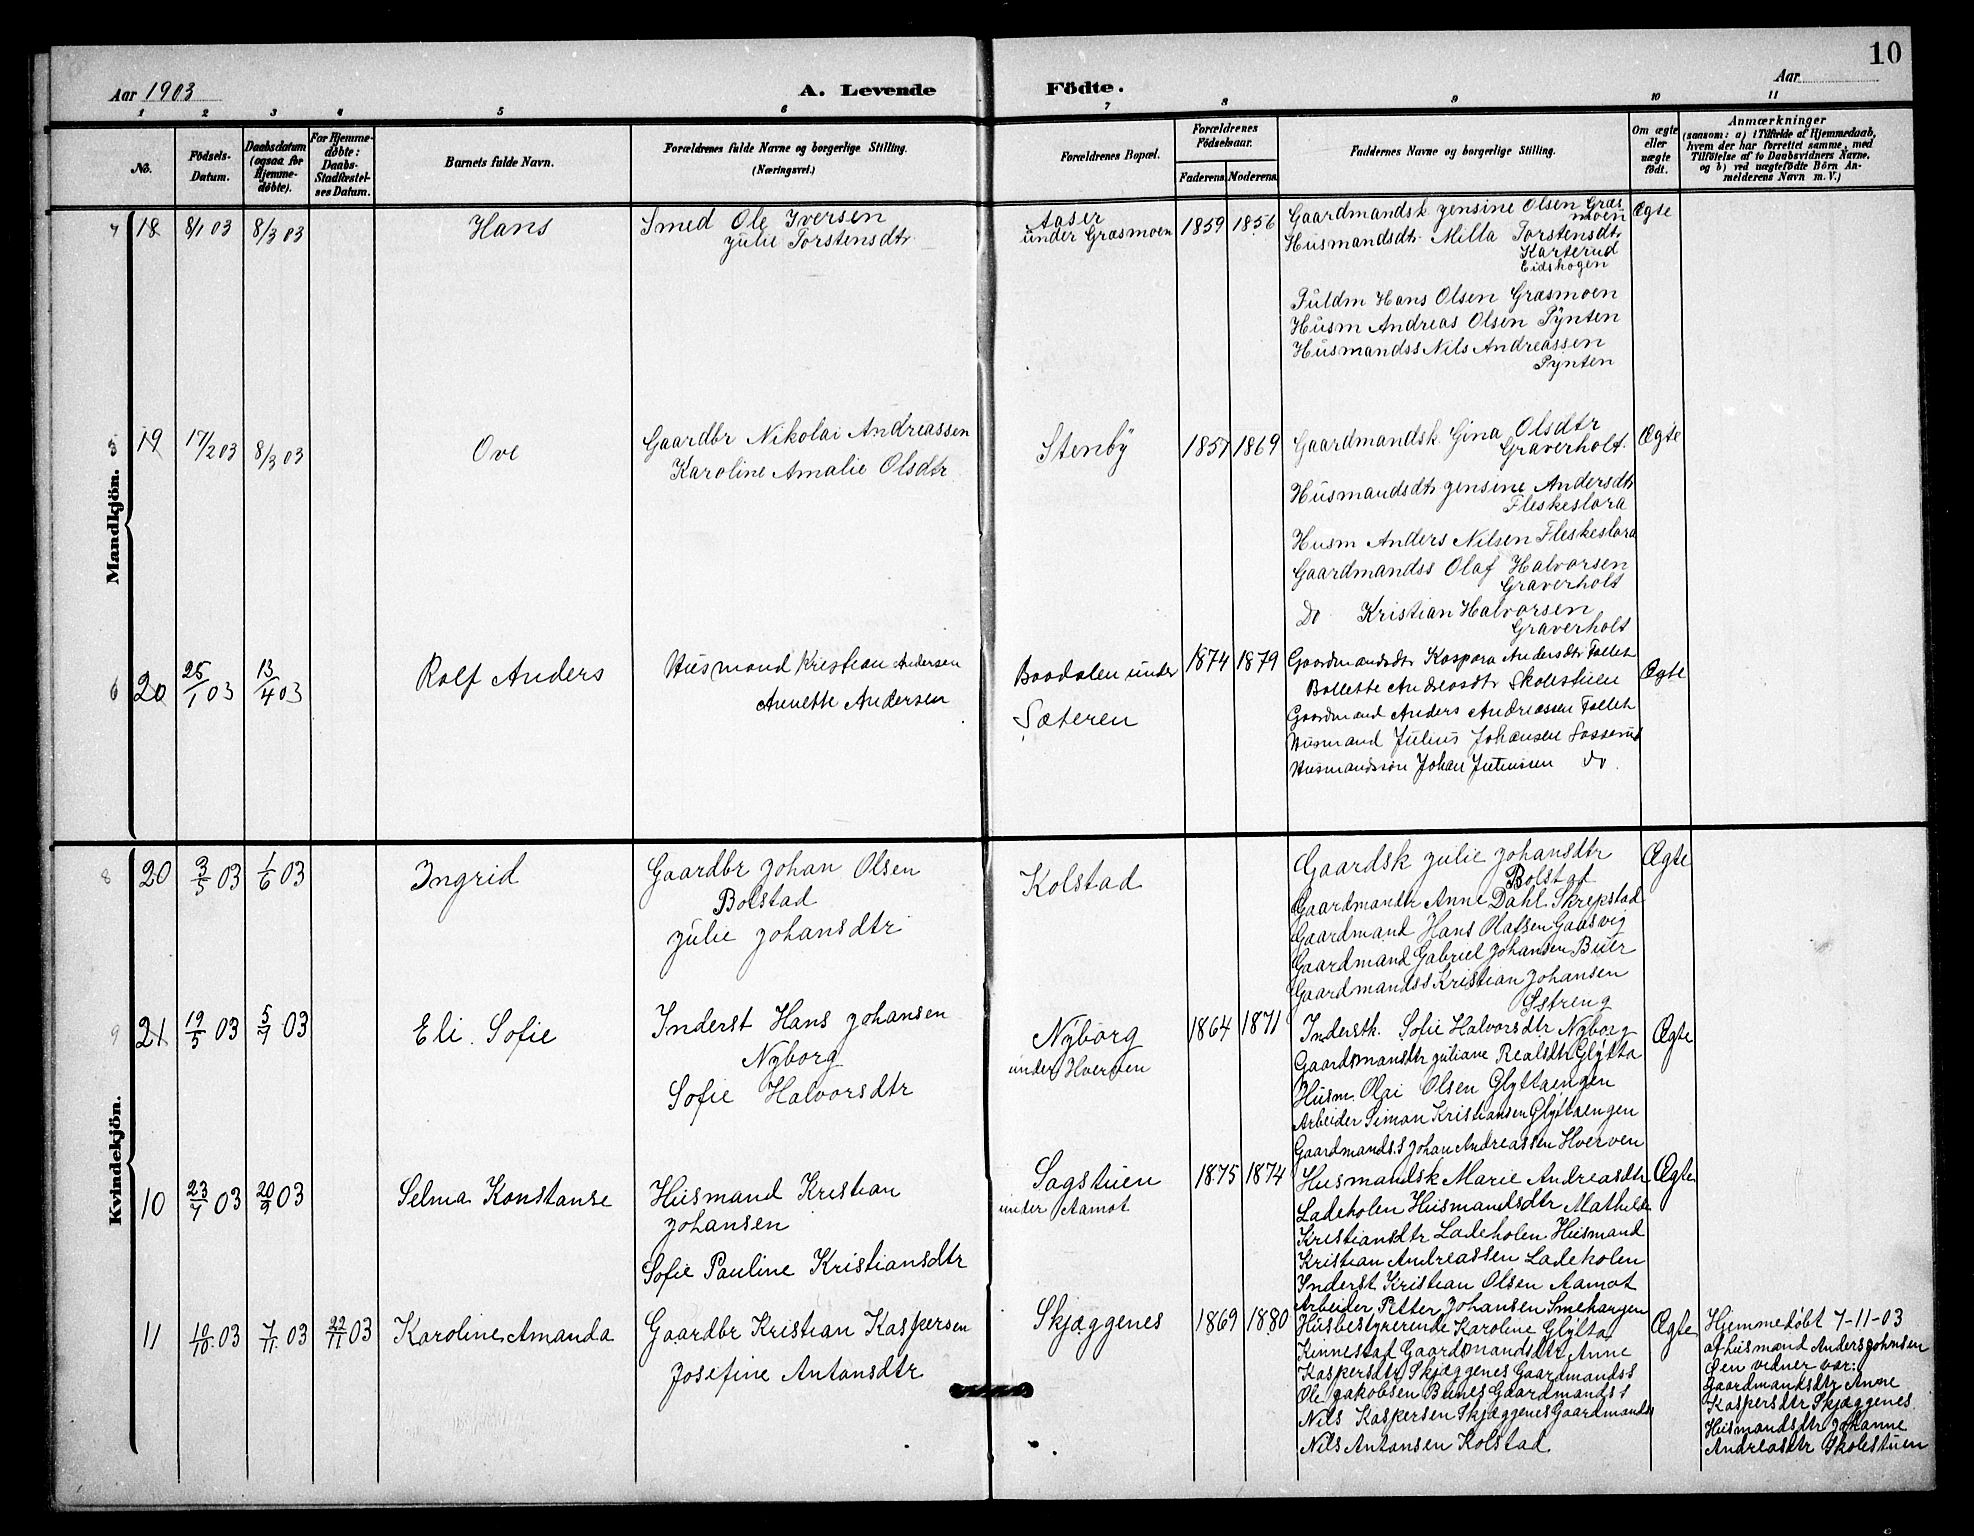 10
Aar 1903
A. Levende
Födte.
Aar
1 2 3 4 5 6 7 8 9 10 11
No.
Födsels-Datum.
Daabsdatum (ogsaa for Hjemmedöbte).
For Hjemmedöbte: Daabs-Stadfæstelses Datum.
Barnets fulde Navn.
Forældrenes fulde Navne og borgerlige Stilling.
(Næringsvei.)
Forældrenes Bopæl.
Forældrenes Födselsaar.
Faderens. Moderens.
Faddernes Navne og borgerlige Stilling.
Om ægte eller uægte födt.
Anmærkninger
(saasom: a) i Tilfælde af Hjemmedaab,
hvem der har forrettet samme, med
Tilföielse af to Daabsvidners Navne.
og b) ved uægtefödte Börn An-
melderens Navn m. V.)
Mandkjön.
18 8/1 03 8/3 03
Hans
Smed Ole Iversen
Julie Torstensdtr
Aaser
under Grasmoen
1859 1856
Gaardmandsk Jensine Olsen Gras
moen
Husmandsdtr Milla Torstensdtr
Karterud
Eidskogen
Fuldm Hans Olsen Grasmoen
Husm Andreas Olsen Pynten
Husmandss Nils Andreassen
Pynten
Ægte
5 19 17/2 03 8/3 03
Ove
Gaardbr Nikolai Andreassen
Karoline Amalie Olsdtr
Stenby
1857 1869
Gaardmandsk. Gina Olsdtr
Graverholt.
Husmandsdtr Jensine Andersdtr
Fleskeslora
Husm Anders Nilsen Fleskeslora
Gaardmandss Olaf Halvorsen
Graverholt
Do Kristian Halvorsen
Graverholt
Ægte
6 20 25/1 03 13/4 03
Rolf Anders
Husmand Kristian Andersen
Annette Andersen
Baadalen under
Sæteren
1874 1879
Gaardmandsdtr Kaspara Andersdtr Tollet
Bollette Andreasdtr Skolestuen
Gaardmand Anders Andreassen Tollet
Husmand Julius Johansen
Husmandssøn Johan Do.
Ægte
Kvindekjön.
8 20 3/5 03 1/6 03
Ingrid
Gaardbr Johan Olsen
Bolstad
Julie Johansdtr
Kolstad
Gaardsk Julie Johansdtr
Bolstad
Gaardmandtr Anne Dahl Skrepstad
Gaardmand Hans Olafsen Gaasvig
Gaardmand Gabriel Johansen Buer
Gaardmandss Kristian Johansen
Ægte
9 21 19/5 03 5/7 03
Eli. Sofie
Inderst Hans Johansen
Nyborg
Sofie Halvorsdtr
Nyborg
under Hverven
1864 1871
Inderstk. Sofie Halvorsdtr Nyborg
Gaardmansdtr Juliane Realsdtr Glytta
Husm. Olai Olsen Glyttaengen
Arbeider Simon Kristiansen Glyttaengen
Gaardmands.s Johan Andreassen Hverven
Ægte
10 23/7 03 20/9 03
Selma Konstanse
Husmand Kristian
Johansen
Sofie Pauline Kristiansdtr
Sagstuen
under Aamot
1875 1874
Husmandsk Marie Andreasdtr
Ladeholen Husmandsdtr Mathilde
Kristiansdtr Ladeholen Husmand
Kristian Andreassen Ladeholen
Inderst Kristian Olsen Aamot
Arbeider Petter Johansen Smehangen
Ægte
11 10/10 03 7/11 03 22/11 03
Karoline Amanda
Gaardbr Kristian Kaspersen
Josefine Antonsdtr
Skjæggenes
1869 1880
Husbestyrerende Karoline Glytta
Kinnestad Gaardmandsdtr Anne
Kaspersdtr Skjæggenes Gaardmandss
Ole Jakobsen Bunes Gaardmandss
Nils Kaspersen Skjæggenes Gaardmandss
Nils Antonsen Kolstad
Ægte
Hjemmedøbt 7-11-03
af husmand Anders Johnsen
Øen vidner var:
Gaardmandsdtr Anne
Kaspersdtr Skjæggenes
Husmandsdtr Johanne
Andreasdtr Skolestuen